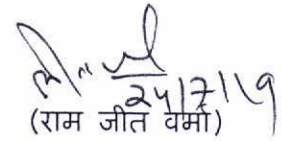 24/7/19
(राम जीत वर्मा)